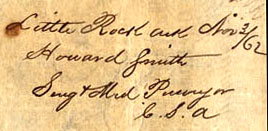 Little Rock Ark Nov 3/62
Howard Smith
Surg & Med Purveyor
C.S.A